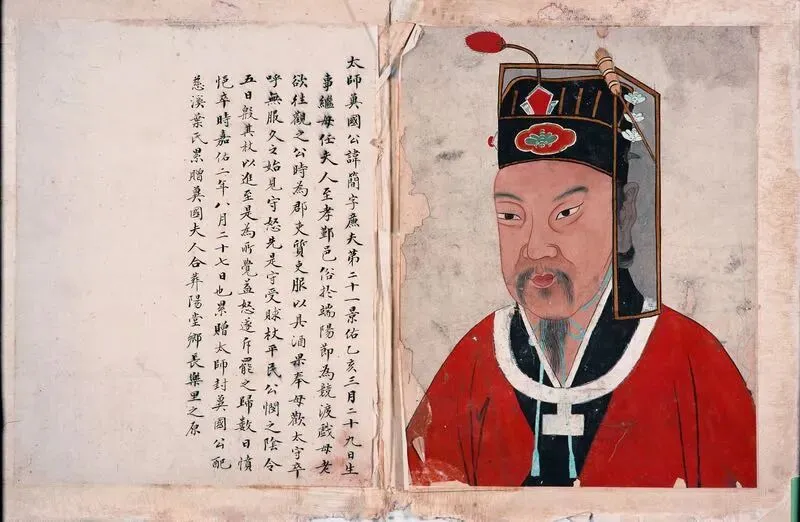 太師冀國公諱簡字廉夫第二十一景佑乙亥三月二十九日生
事繼母任夫人至孝鄞邑俗於端陽節為競渡戲母老
欲往觀之公時為郡吏質吏服以具酒果奉母歡太守卒
呼無服久之始見守怒先是守受賕杖平民公憫之陰令
五日般其杖以進至是為所覺益怒遂斥罷之歸數日憤
悒卒時嘉佑二年八月二十七日也累贈太師封冀國公配
慈溪葉氏累贈冀國夫人合葬陽堂鄉長樂里之原